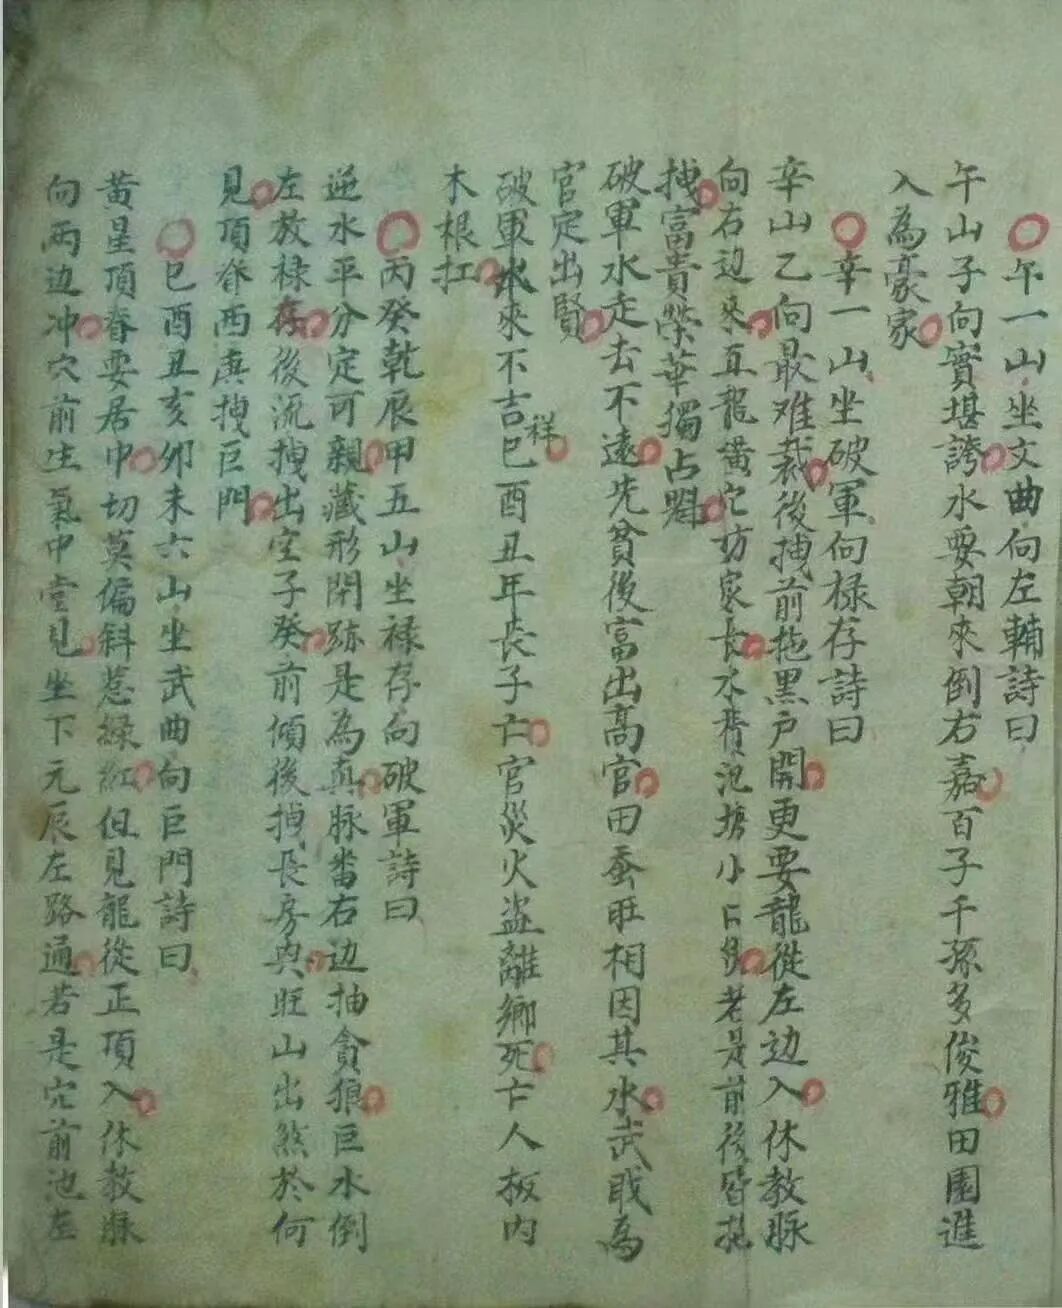 午一山坐文曲向左輔詩曰
午山子向實堪誇水要朝來倒右嘉百子千孫多俊雅田園進
入為豪家
辛一山坐破軍向祿存詩曰
辛山乙向最难裁後拽前拖黑户開更要龍從左边入休教脉
向右边来直龍橫穴妨家長水費池塘小口多老是前後皆拖
拽富貴榮華獨占魁
破軍水走去不遠先貧後富出高官田蚕旺相因其水武職為
官定出賢
破軍水來不吉祥巳酉丑年長子亡官災火盜離鄉死亡人板内
木根扛
丙癸乾辰甲五山坐禄存向破軍詩曰
逆水平分定可親藏形閉跡是為真脉畨右边抽貪狼巨水倒
左放禄存後流拽出宝子癸前傾後拽長房興旺山出煞於何
見頂脊西庚拽巨門
巳酉丑亥卯未六山坐武曲向巨門詩曰
黄星頂脊要居中切莫偏斜惹緑紅但見龍從正頂入休教脉
向兩边冲穴前生氣中堂見坐下元辰左路通若是穴前池左